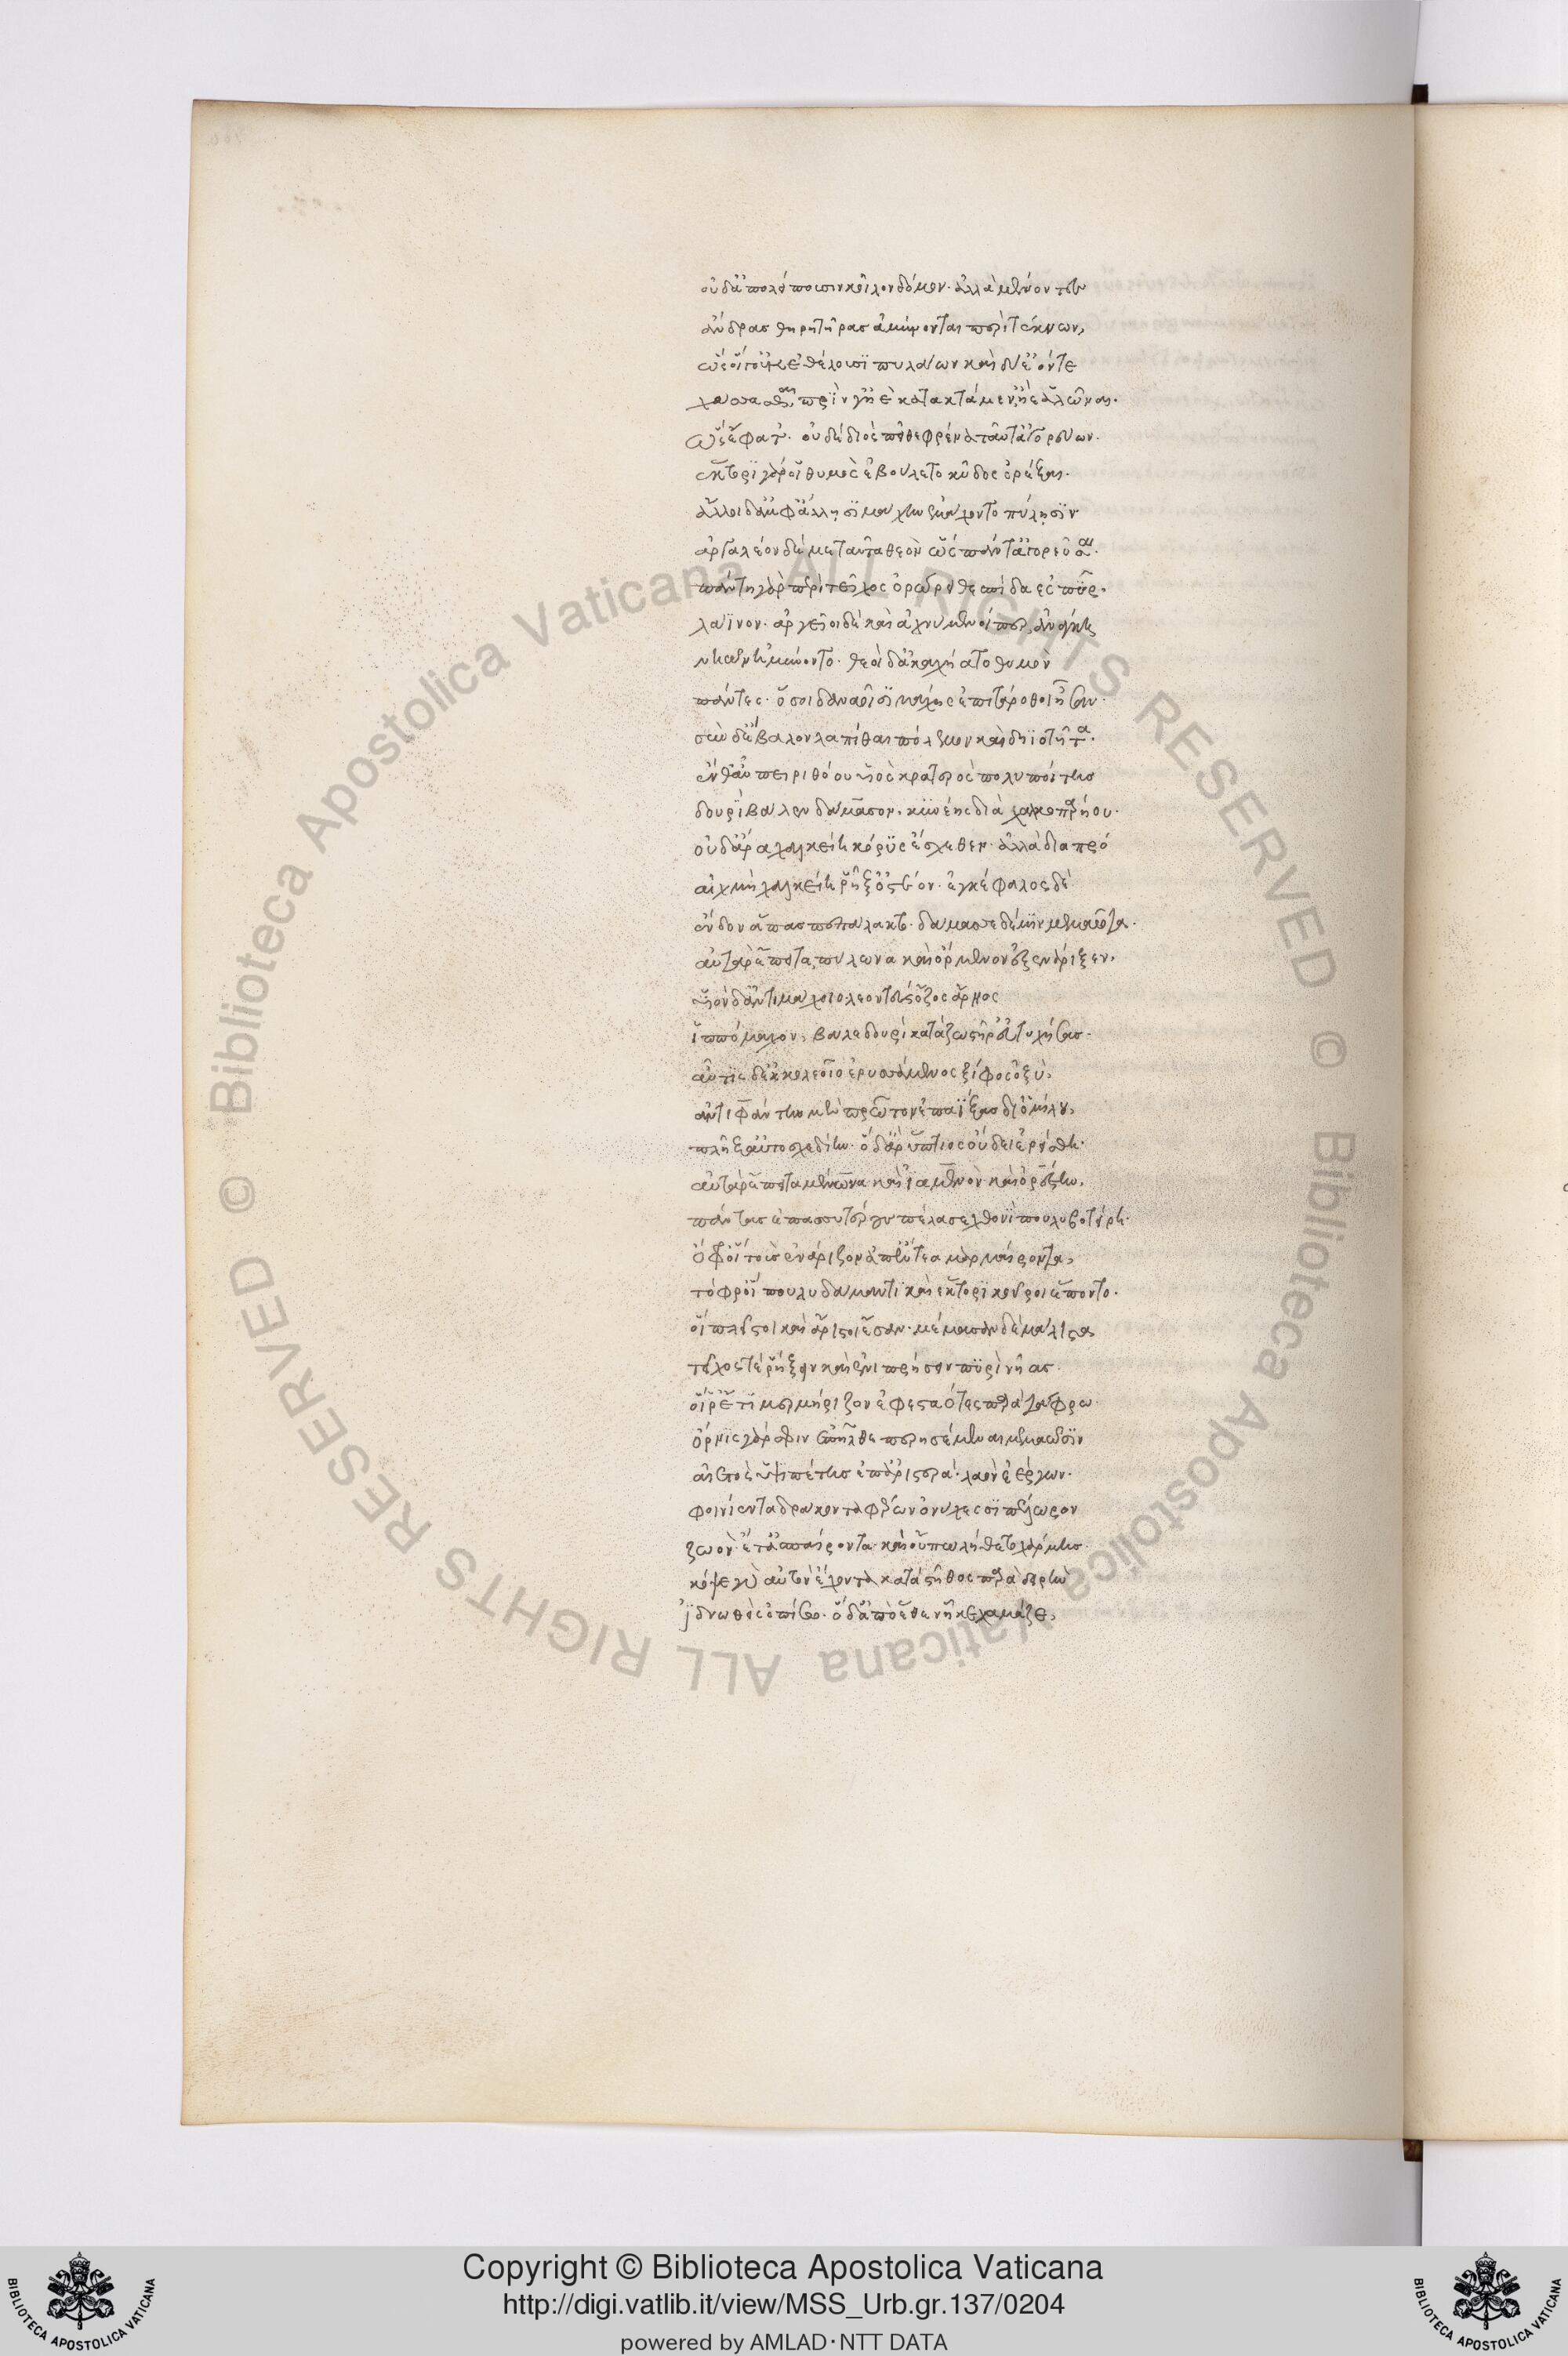 οὐδ' ἀπολείπουσιν κοῖλον δόμον· ἀλλὰ μένοντες
ἄνδρας θηρητῆρας ἀμύνονται περὶ τέκνων,
ὣς οἵγ' οὐκ ἐθέλουσι πυλάων καὶ δύ' ἐόντε
χάσσασθαι, πρίν γ' ἠὲ κατακτάμεν, ἠὲ ἁλῶναι.
ὣς ἔφατ'· οὐδὲ διὸς πεῖθε φρένα ταῦτ' ἀγορεύων.
ἕκτορι γάρ οἱ θυμὸς ἐβούλετο κῦδος ὀρέξαι.
ἄλλοι δ' ἀμφ' ἄλλῃσι μάχην ἐμάχοντο πύλῃσιν
ἀργαλέον δέ με ταῦτα θεὸν ὣς πάντ' ἀγορεῦσαι.
πάντη γὰρ περὶ τεῖχος ὀρώρει θεσπιδαὲς πῦρ.
λάϊνον. ἀργεῖοι δὲ καὶ ἀχνύμενοί περ, ἀνάγκῃ
νηῶν ἠμύνοντο· θεοὶ δ' ἀκαχήατο θυμὸν
πάντες· ὅσοι δαναοῖσι μάχης ἐπιτάρροθοι ἦσαν.
σὺν δ' ἔβαλον λαπίθαι πόλεμον καὶ δηϊοτῆτα.
ἔνθ' αὖ πειριθόου υἱὸς κρατερὸς πολυποίτης
δουρὶ βάλεν δάμασον. κυνέης διὰ χαλκοπαρήου.
οὐδ' ἄρα χαλκείη κόρυς ἔσχεθεν· ἀλλὰ διαπρό
αἰχμὴ χαλκείη ῥῆξ' ὀστέον· ἐγκέφαλος δὲ
ἔνδον ἅπας πεπάλακτο. δάμασσε δέ μιν μεμαῶτα.
αὐτὰρ ἔπειτα, πύλωνα καὶ ὄρμενον ἐξενάριξεν.
υἱὸν δ' ἀντιμάχοιο λεοντεὺς ὄζος ἄρηος
ἱππόμαχον, βάλε δουρὶ κατὰ ζωστῆρα τυχήσας.
αὖτις δ' ἐκ κολεοῖο ἐρυσσάμενος ξίφος ὀξὺ,
ἀντιφάτην μὲν πρῶτον ἐπαΐξας δι' ὁμίλου,
πλῆξ' αὐτοσχεδίην· ὃ δ' ἄρ' ὕπτιος οὔδει ἐρείσθη.
αὐτὰρ ἔπειτα μένωνα καὶ ἰαμενὸν καὶ ὀρέστην,
πάντας ἐπασσυτέρους πέλασε χθονὶ πουλυβοτείρῃ.
ὄφρ' οἳ τοὺς ἐνάριζον ἀπ' ἔντεα μαρμαίροντα,
τόφρ' οἳ πουλυδάμαντι καὶ ἕκτορι κοῦροι ἕποντο.
οἳ πλεῖστοι καὶ ἄριστοι ἔσαν· μέμασαν δὲ μάλιστα
τεῖχός τε ῥήξειν καὶ ἐνιπρήσειν πυρὶ νῆας.
οἵ ῥ' ἔτι μερμήριζον ἐφεσταότες παρὰ τάφρῳ
ὄρνις γάρ σφιν ἐπῆλθε περησέμεναι μεμαῶσιν
αἰετὸς ὑψιπέτης ἐπ' ἀριστερά· λαὸν ἐέργων.
φοινήεντα δράκοντα φέρων ὀνύχεσσι πέλωρον
ζωὸν ἔτ' ἀσπαίροντα. καὶ οὔπω λήθετο χάρμης.
κόψε γὰρ αὐτὸν ἔχοντα κατὰ στῆθος παρὰ δειρὴν
ἰδνωθεὶς ὀπίσω. ὃ δ' ἀπὸ ἕθεν ἧκε χαμάζε,
Copyright © Biblioteca Apostolica Vaticana
http://digi.vatlib.it/view/MSS_Urb.gr.137/0204
powered by AMLAD·NTT DATA